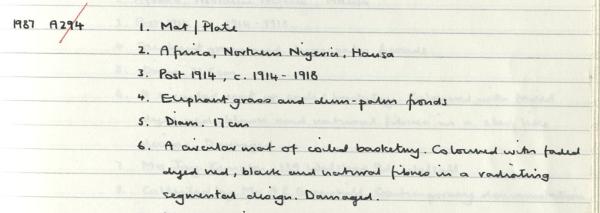 1987 A294 1. Mat / Plate
2. Africa, Northern Nigeria, Hausa
3. Post 1914, c. 1914 - 1918
4. Elephant grass and dum-palm fronds
5. Diam. 17 cm
6. A circular mat of coiled basketry. Coloured with faded
dyed red, black and natural fibres in a radiating
segmental design. Damaged.